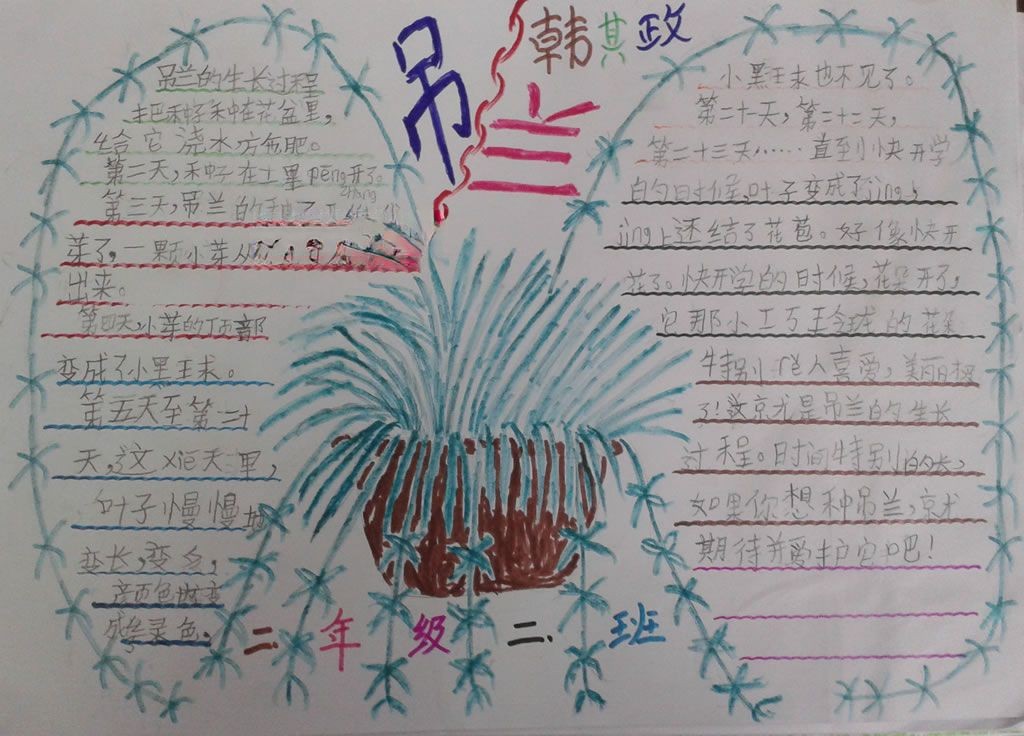 吊兰
韩其政
吊兰的生长过程
把种子种在花盆里，
给它浇水方施肥。
第二天，种子在土里peng开了。
zhang
第三天，吊兰的种子
芽了，一颗小芽从
出来。
第四天，小芽的顶部
变成了小黑王求。
第五天至第二十
天，这 天里，
叶子慢慢地
变长，变多，
颜色
成绿灵色。
小黑王求也不见了。
第二十一天，第二十二天，
第二十三天……直到快开学
的时候，叶子变成了jing，
jing上还结了花苞。好像快开
花了。快开学的时候，花朵开了，
它那小 的花朵
特别 人喜爱，美丽极
了！这就是吊兰的生长
过程。时间特别的长，
如果你想种吊兰，就
期待并爱护它吧！
二.年级二.班